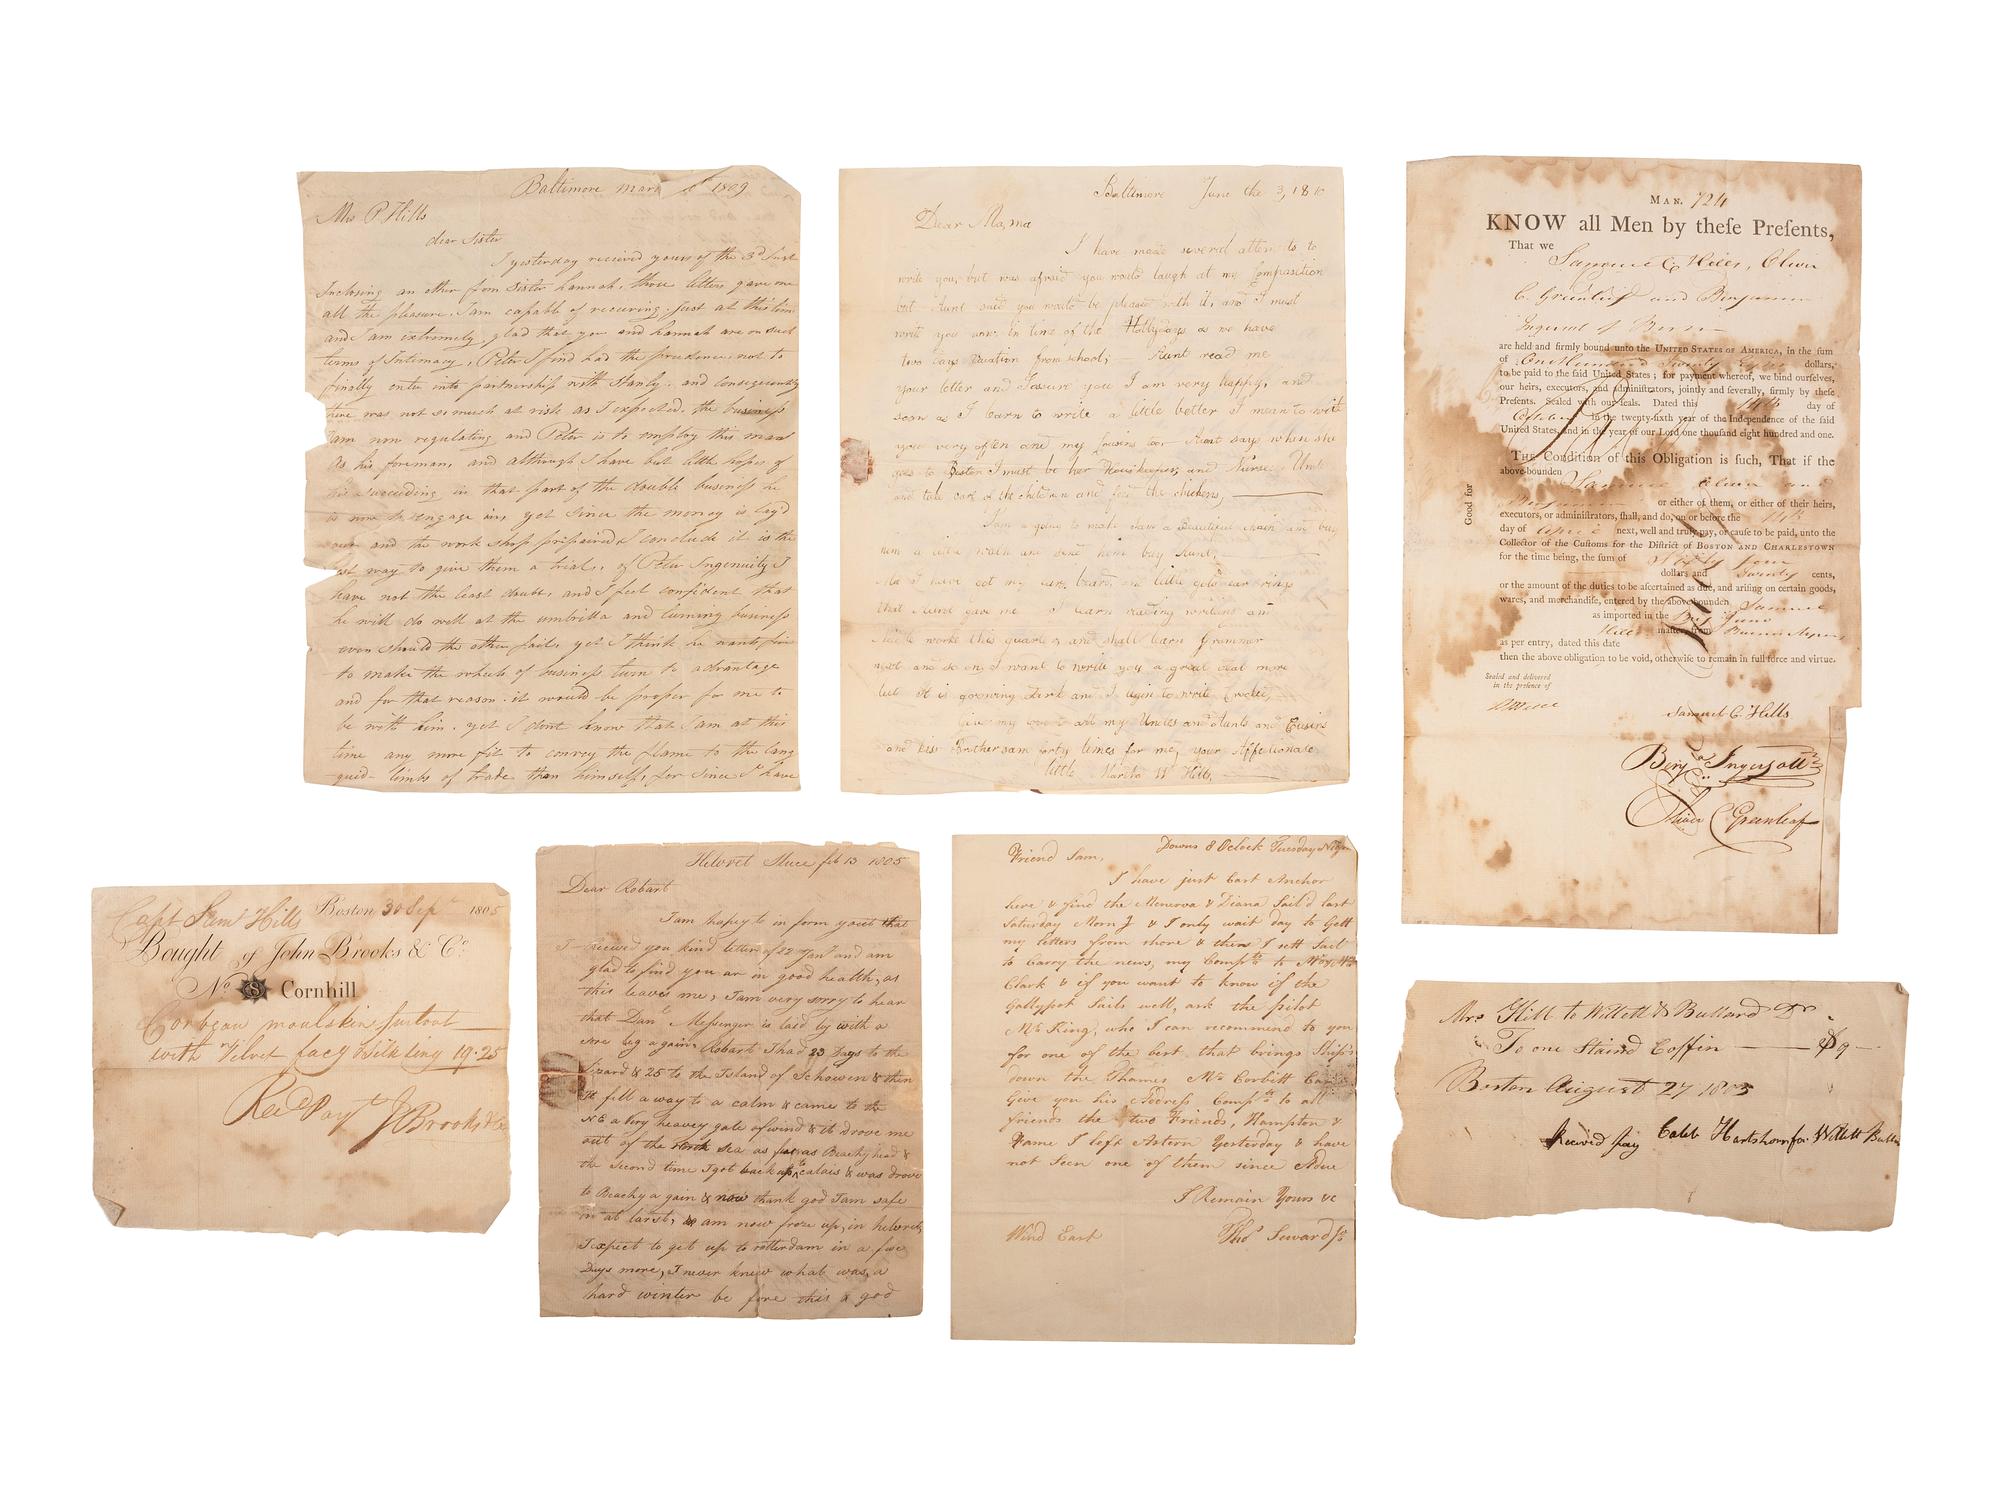 Baltimore 1809
Mrs P Hills
dear Sister
I yesterday recieved yours of the 3d Inst
Inclosing an other from Sister hannah, those letters gave me
all the pleasure I am capable of recieving just at this time
and I am extremely glad that you and hannah are on such
terms of Intimacy, Peter I find had the prudence not to
finally enter into partnership with Stanly and consequently
there was not so much at risk as I expected, the business
I am now regulating and Peter is to employ this man
as his foreman, and although I have but little hopes of
his succeeding in that part of the double business he
is now to engage in, yet since the money is lay'd
and the work shop prepaired I conclude it is the
best way to give them a trial, of Peter Ingenuity I
have not the least doubt, and I feel confident that
he will do well at the umbrilla and turning business
even should the other fail, yet I think he wants
to make the wheels of business turn to advantage
and for that reason it would be proper for me to
be with him. yet I dont know that I am at this
time any more fit to convey the flame to the lang
guid limbs of trade than himself, for since I have
Baltimore June the 3, 1810
Dear Ma,ma
I have made several attempts to
write you, but was afraid you would laugh at my Composition
but Aunt said you would be pleased with it, and I must
write you now in time of the Hollydays as we have
two days vacation from school; — Aunt read me
your letter and I asure you I am very happy, and
soon as I learn to write a little better I mean to write
you very often and my Cousins too Aunt says when she
goes to Boston I must be her Housekeeper, and Nurse, Unto
and take care of the children and feed the chickens,
I am a going to make Sam a Beautiful chain and buy
him a little watch and send him buy Aunt,
Ma I have got my ears board, and little gold ear rings
that Aunt gave me I learn reading writeing and
Needle worke this quarter, and shall learn Grammer
next and so on, I want to write you a great deal more
but it is growing dark and I begin to write Crooked,
Give my love to all my Uncles and Aunts and Cusins
and kiss Brother sam forty times for me, your Affectionate
little Martha W Hills,
MAN. 724
KNOW all Men by theſe Preſents,
That we
Samuel C. Hills, Oliver
C. Greenleaf and Benjamin
Ingersol of Boston
are held and firmly bound unto the UNITED STATES OF AMERICA, in the sum
of One thousand Twenty dollars,
to be paid to the said United States; for payment whereof, we bind ourselves,
our heirs, executors, and adminiſtrators, jointly and ſeverally, firmly by theſe
Preſents. Sealed with our ſeals. Dated this day of
October in the twenty-ſixth year of the Independence of the ſaid
United States, and in the year of our Lord one thouſand eight hundred and one.
THE Condition of this Obligation is ſuch, That if the
above-bounden
Samuel Oliver and
Benjamin or either of them, or either of their heirs,
executors, or adminiſtrators, ſhall, and do, on or before the
day of April next, well and truly pay, or cauſe to be paid, unto the
Collector of the Cuſtoms for the Diſtrict of BOSTON AND CHARLESTOWN
for the time being, the ſum of Sixty four
dollars and Twenty cents,
or the amount of the duties to be aſcertained as due, and ariſing on certain goods,
wares, and merchandiſe, entered by the above-bounden Samuel
as imported in the Brig Juno
Hills maſter, from Buenos Ayres
as per entry, dated this date
then the above obligation to be void, otherwiſe to remain in full force and virtue.
Good for
Sealed and delivered
in the preſence of
Samuel C. Hills
Benja Ingersoll
Oliver C Greenleaf
Capt Saml Hills Boston 30 Sepr 1805
Bought of John Brooks & Co.
No. 8 Cornhill
Corbeau moulskin surtout
with Velvet facg & Silk ling 19.25
Recd Payt J Brooks & Co
Helvoet Sluce feb 13 1805
Dear Robart
I am hapey to in form you that
I receved you kind letter of 22 Jan and am
glad to find you ar in good health, as
this leaves me, I am very sorry to hear
that Danl Messinger is laid by with a
sore leg again Robart I had 23 Days to the
lizard & 25 to the Island of Schowen & then
It fell a way to a calm & came to the
NE a very heavey gale of wind & it drove me
out of the North sea as far as Beachy head &
the Second time I got back up to calais & was drove
to Beachy a gain & now thank god I am safe
in at larst, & am now froze up, in helvoet,
I expect to get up to rotterdam in a few
Days more, I never knew what was, a
hard winter be fore this a god
Downs 8 Oclock Tuesday Night
Friend Sam,
I have just Cast Anchor
here & find the Menerva & Diana Sail'd last
Saturday Morng & I only wait day to Gett
my letters from shore & then I sett Sail
to Carry the news, my Compts to Mr & Mrs
Clark & if you want to know if the
Gallypot Sails well, ask the pilot
Mr King, who I can recommend to you
for one of the best that brings Ships
down the Thames Mr Corbitt Can
Give you his Adress Compts to all
friends the two Friends, Hampton &
Fame I left Astern Yesterday & have
not Seen one of them since Adue
I Remain Yours &c
Wind East Thos Seward Jr
Mrs Hill to Willett & Bullard Dr
To one Staind Coffin — $9 —
Boston August 27 1803
Receivd pay Caleb Hartshorn for Willett Bulla